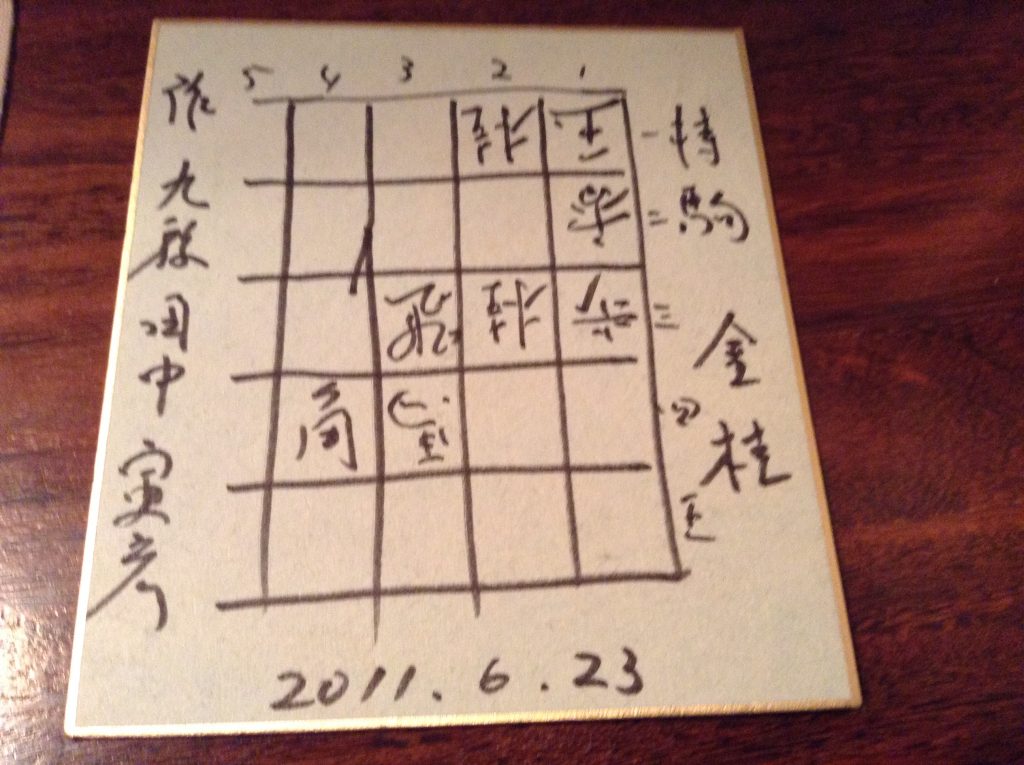 5 4 3 2 1
桂 玉 一
香 二
飛 桂 三
角 四
五
持駒
金桂
作 九段 田中 寅彦
2011.6.23